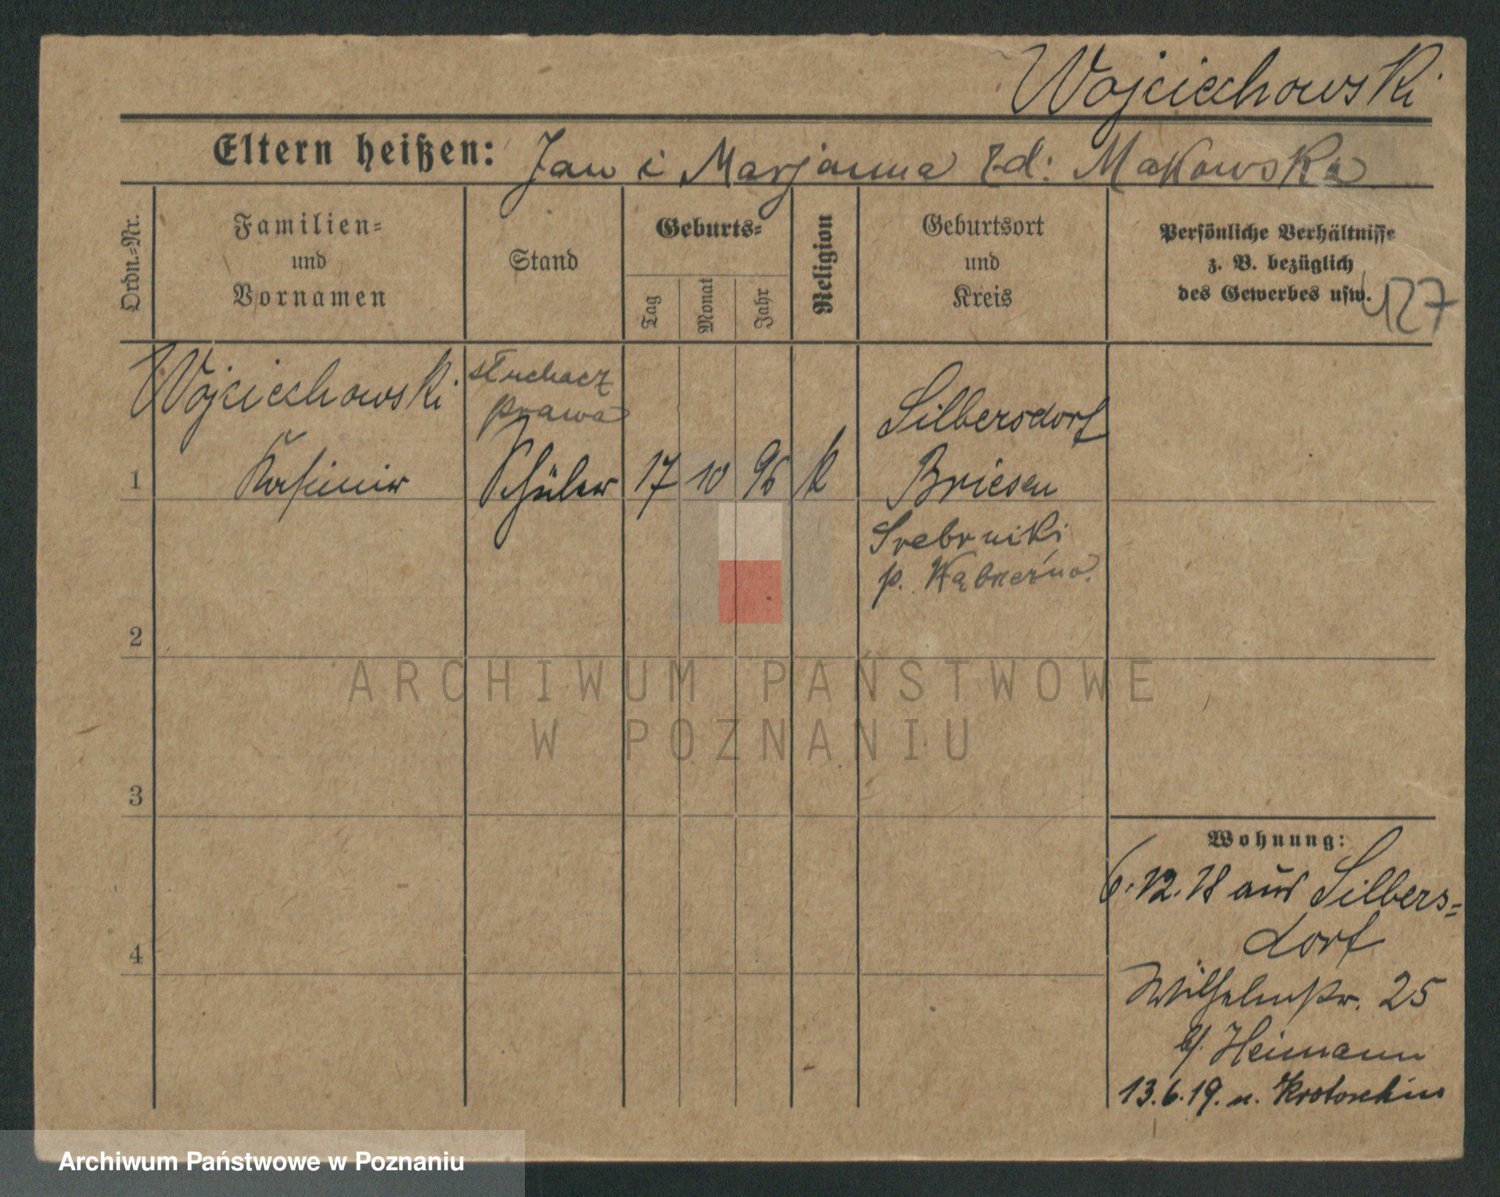 Wojciechowski
Eltern heißen: Jan i Marjanna zd: Makowska
Ordn.-Nr.
Familien-
und
Vornamen
Stand
Geburts-
Tag
Monat
Jahr
Religion
Geburtsort
und
Kreis
Persönliche Verhältnisse
z. B. bezüglich
des Gewerbes usw.
127
Wojciechowski
słuchacz
prawa
Silbersdorf
1 Kasimir Schüler 17 10 96 k Briesen
Srebrniki
p. Wąbrzeźno.
2
ARCHIWUM PAŃSTWOWE
W POZNANIU
3
4
Wohnung:
6.12.18 aus Silbers=
dorf
Wilhelmstr. 25
b/ Heimann
13.6.19. n. Krotoschin
Archiwum Państwowe w Poznaniu